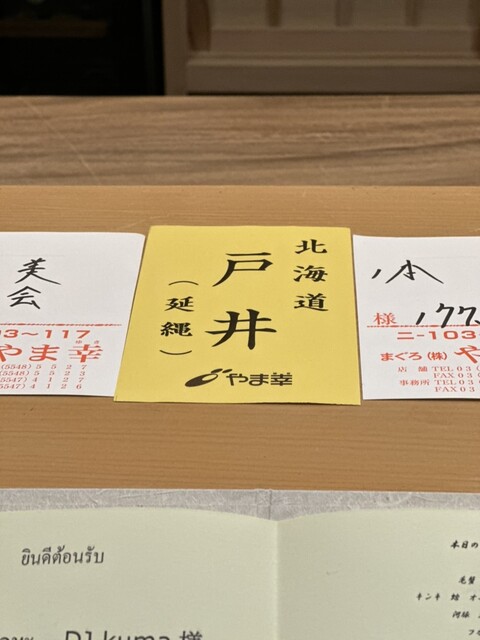 美会
03~117
やま幸
(5548) 5 5 2 7
(5548) 5 5 2 3
(5547) 4 1 2 7
(5547) 4 1 2 6
北海道
戸井
(延縄)
やま幸
1本
様 177
二-103
まぐろ(株)や
店舗 TEL 03 (
FAX 03 (
事務所 TEL 03 (
FAX 03 (
ยินดีต้อนรับ
DJ kuma 様
本日の
毛蟹
キンキ